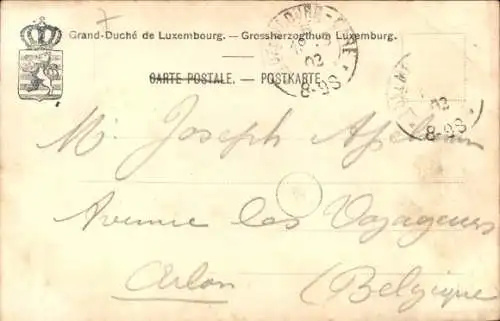 Grand-Duché de Luxembourg. — Grossherzogthum Luxemburg.
CARTE POSTALE. — POSTKARTE
02
8-9S
02
8-9S
M. Joseph
Avenue les Voyageurs
Arlon (Belgique